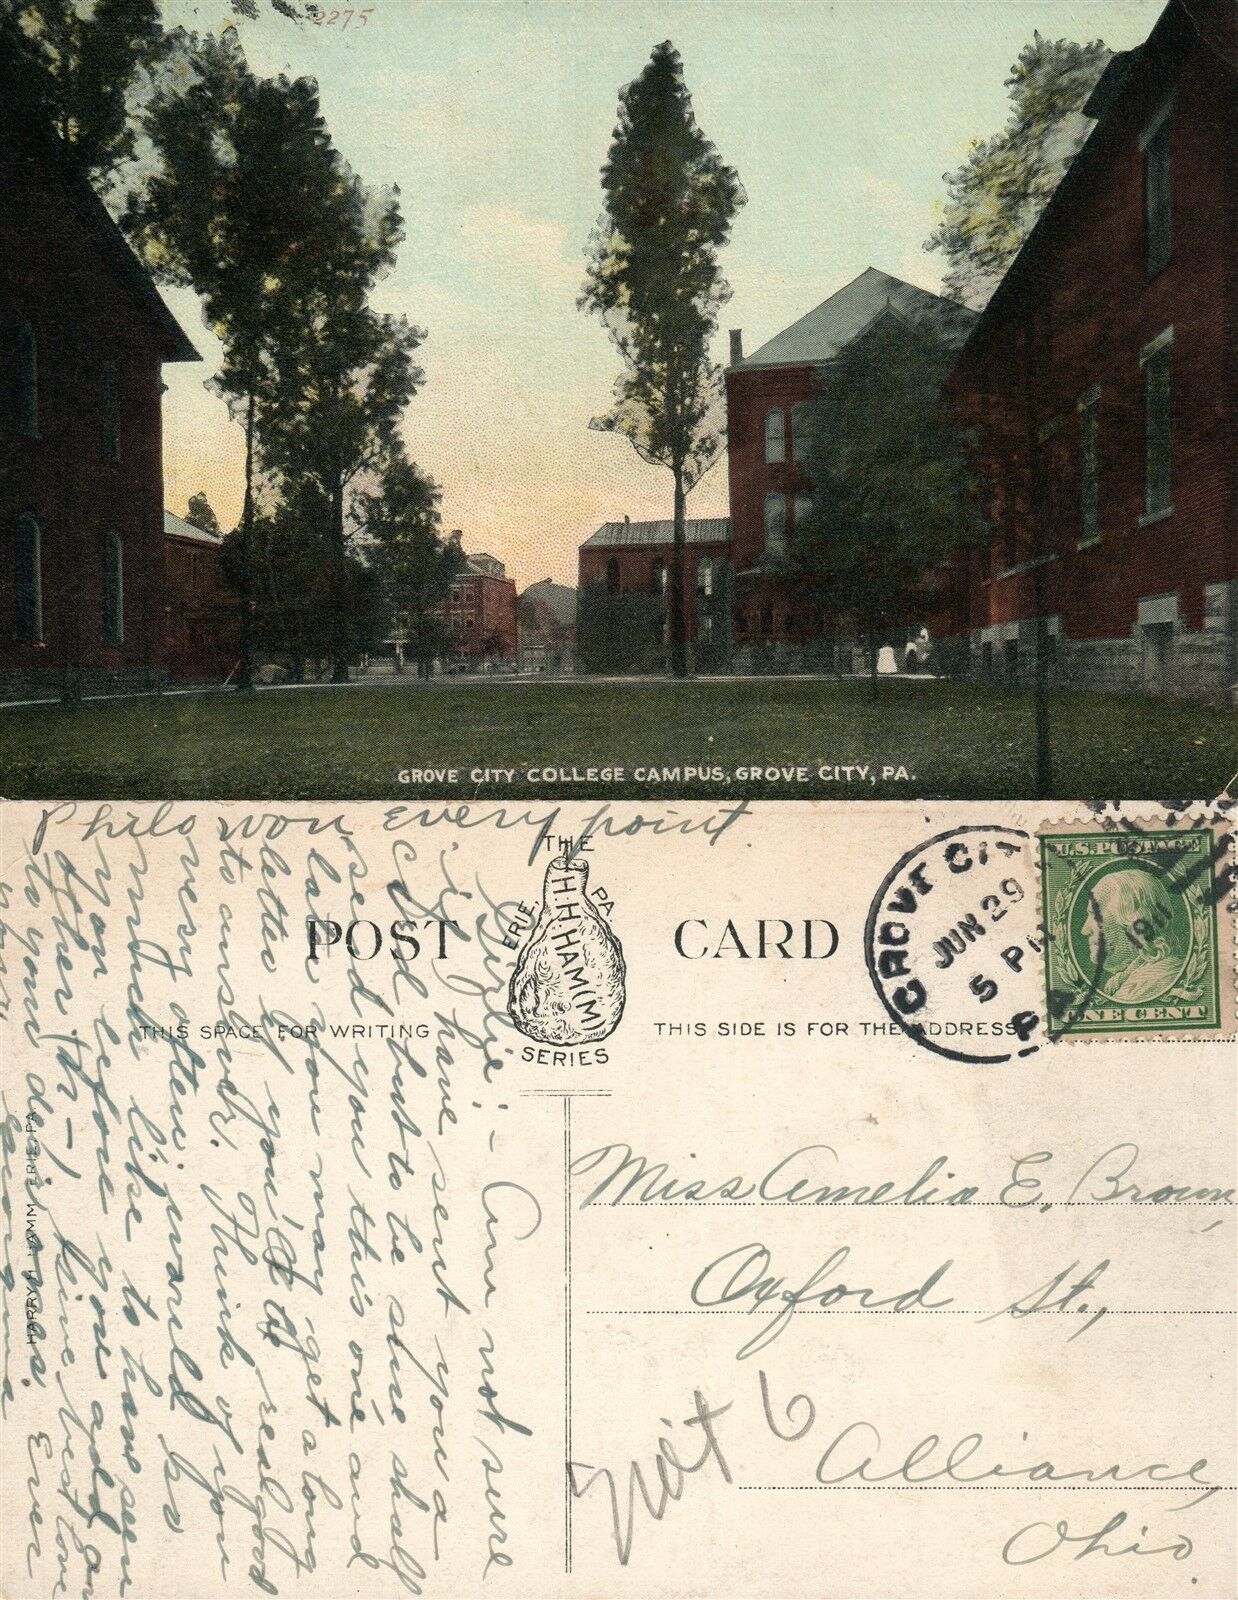 2275
GROVE CITY COLLEGE CAMPUS, GROVE CITY, PA.
Philo won every point
THE
H.H.HAM(M)
ERIE, PA.
SERIES
POST CARD
THIS SPACE FOR WRITING
THIS SIDE IS FOR THE ADDRESS
GROVE CITY
JUN 29
5 PM
1911
PA.
U.S. POSTAGE
ONE CENT
HARRY H. HAMM ERIE, PA.
Girlie: - Am not sure
if have sent you a
card but to be sure shall
send you this one and
later you may get a long
letter if you'd be real good
to answer. Think of you
very often; would be
much like to have seen
you before you
other
to your dear
Ever
your
Miss Amelia E. Brown,
Oxford St.,
Alliance,
Ohio.
6